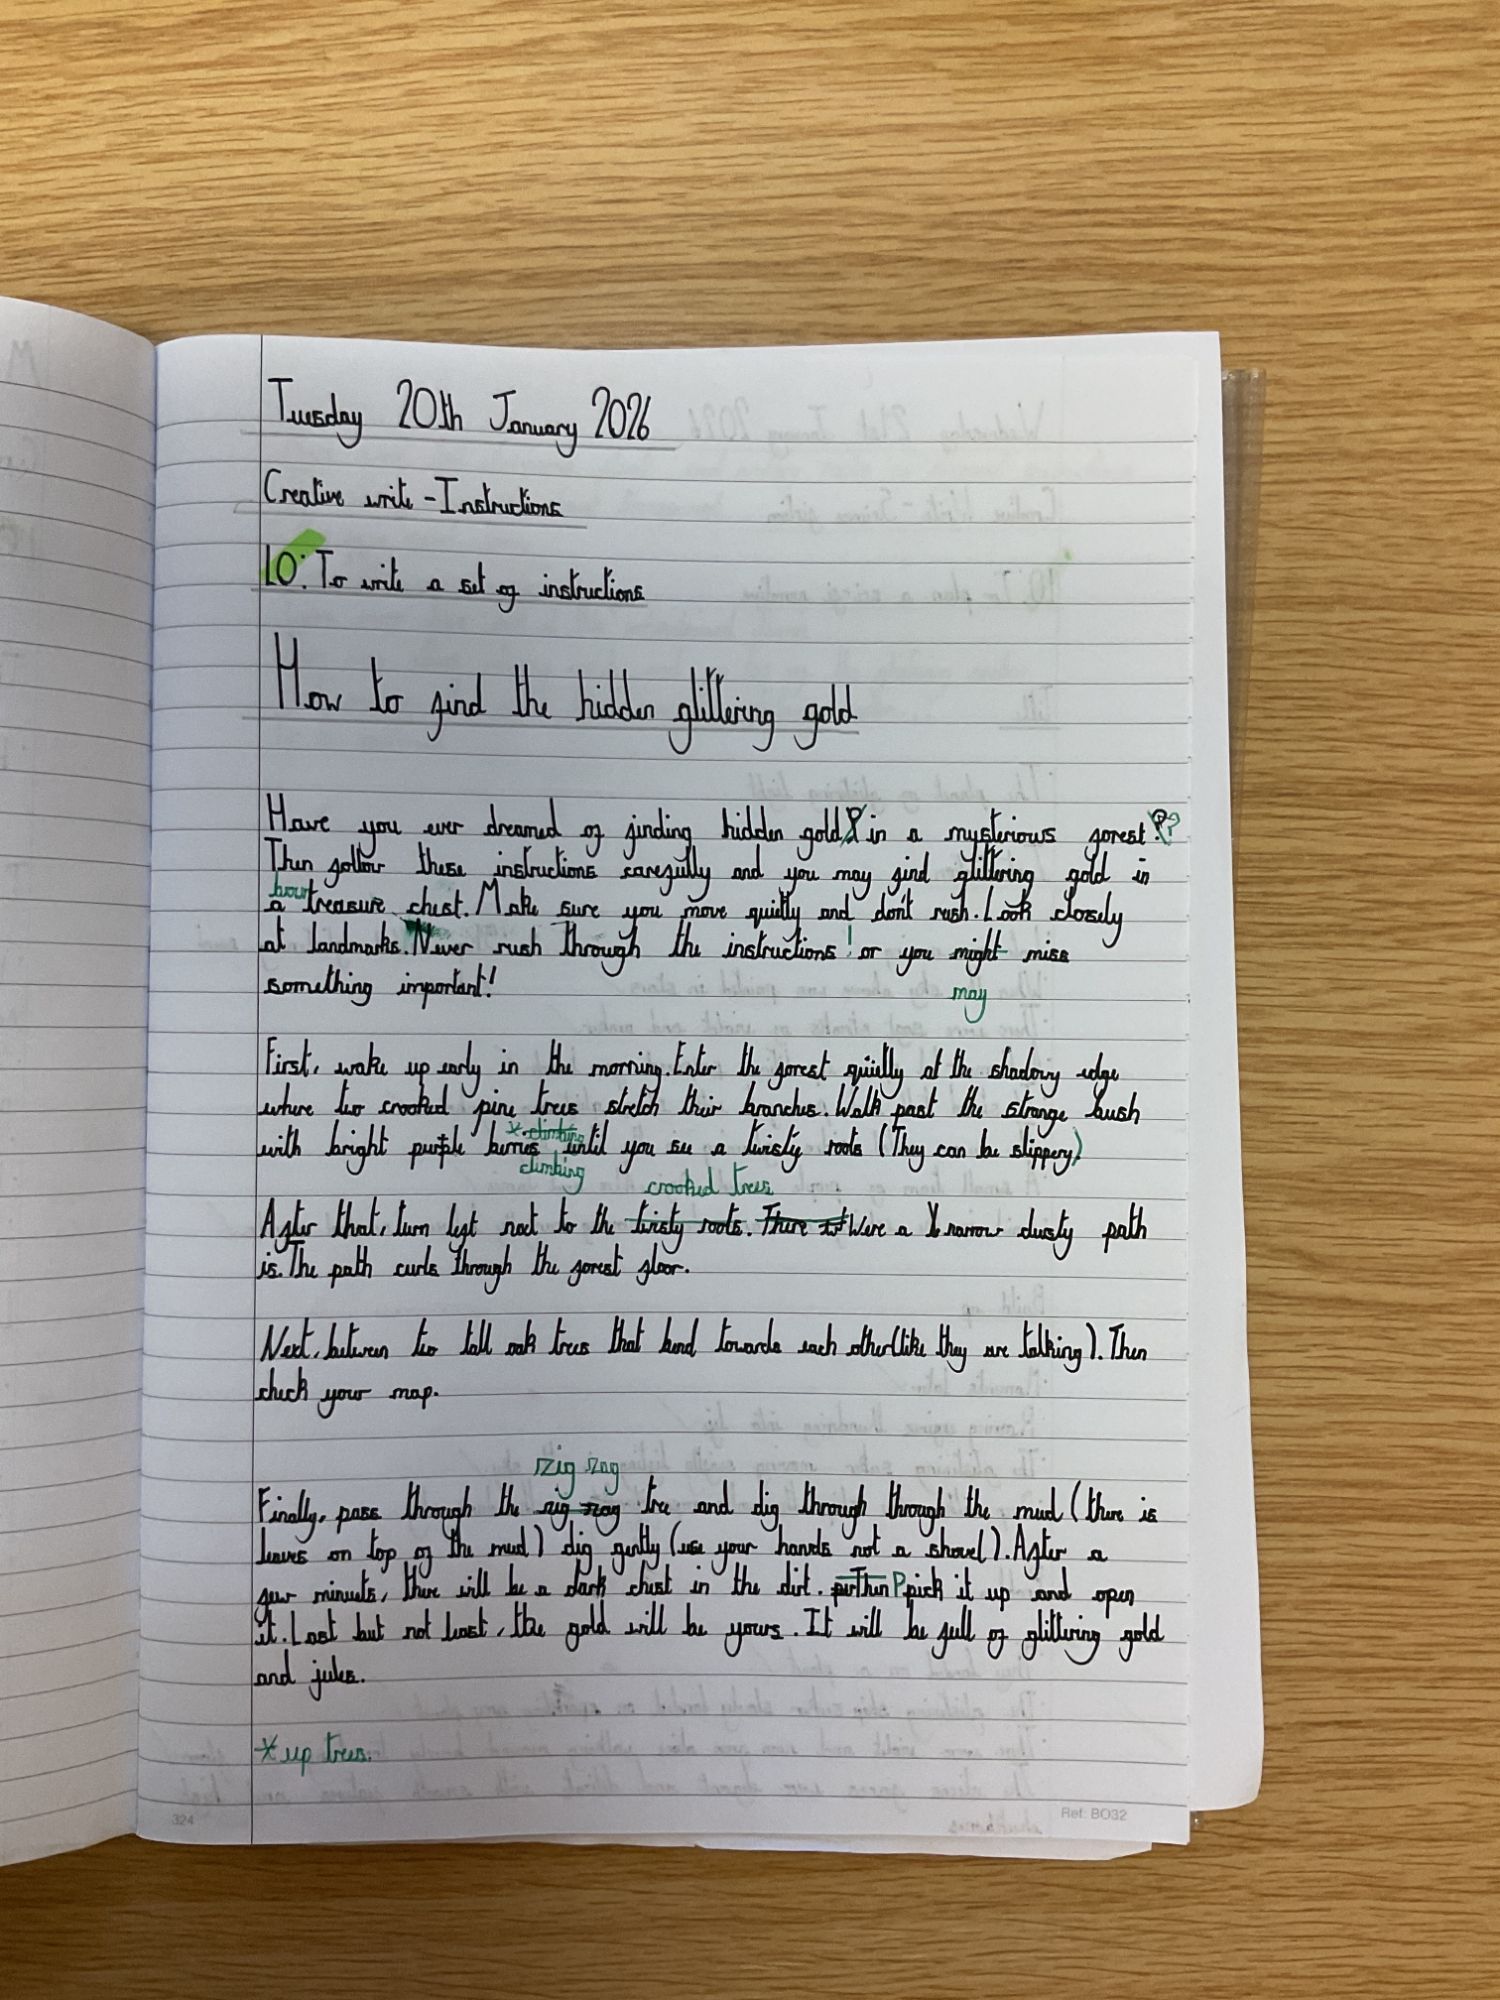 Tuesday 20th January 2026
Creative write - Instructions
LO: To write a set of instructions
How to find the hidden glittering gold
Have you ever dreamed of finding hidden gold in a mysterious forest?
Then follow these instructions carefully and you may find glittering gold in
a treasure chest. Make sure you move quietly and don't rush. Look closely
at landmarks. Never rush through the instructions! or you might miss
may
something important!
First, wake up early in the morning. Enter the forest quietly at the shadowy edge
where two crooked pine trees stretch their branches. Walk past the strange bush
* climbing
with bright purple berries until you see a twisty roots (They can be slippery)
climbing
crooked trees
After that, turn left next to the twisty roots. There Were a narrow dusty path
is. The path curls through the forest floor.
Next, between two tall oak trees that bend towards each other (like they are talking). Then
check your map.
zig zag
Finally, pass through the zig zag tree and dig through through the mud (there is
leaves on top of the mud) dig gently (use your hands not a shovel). After a
few minuets, there will be a dark chest in the dirt. Then Ppick it up and open
it. Last but not least, the gold will be yours. It will be full of glittering gold
and jules.
* up trees.
324
Ref: BO32